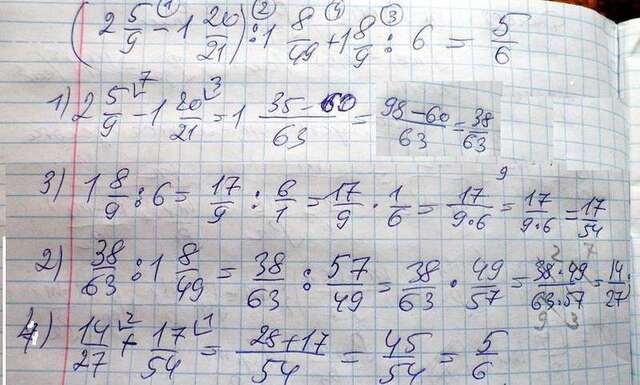 (2 5/9 − 1 20/21) : 1 8/49 + 1 8/9 : 6 = 5/6
1) 2 5/9 − 1 20/21 = 1 35−60/63 = 98−60/63 = 38/63
3) 1 8/9 : 6 = 17/9 : 6/1 = 17/9 · 1/6 = 17/9·6 = 17/9·6 = 17/54
2) 38/63 : 1 8/49 = 38/63 : 57/49 = 38/63 · 49/57 = 38·49/63·57 = 14/27
4) 14/27 + 17/54 = 28+17/54 = 45/54 = 5/6